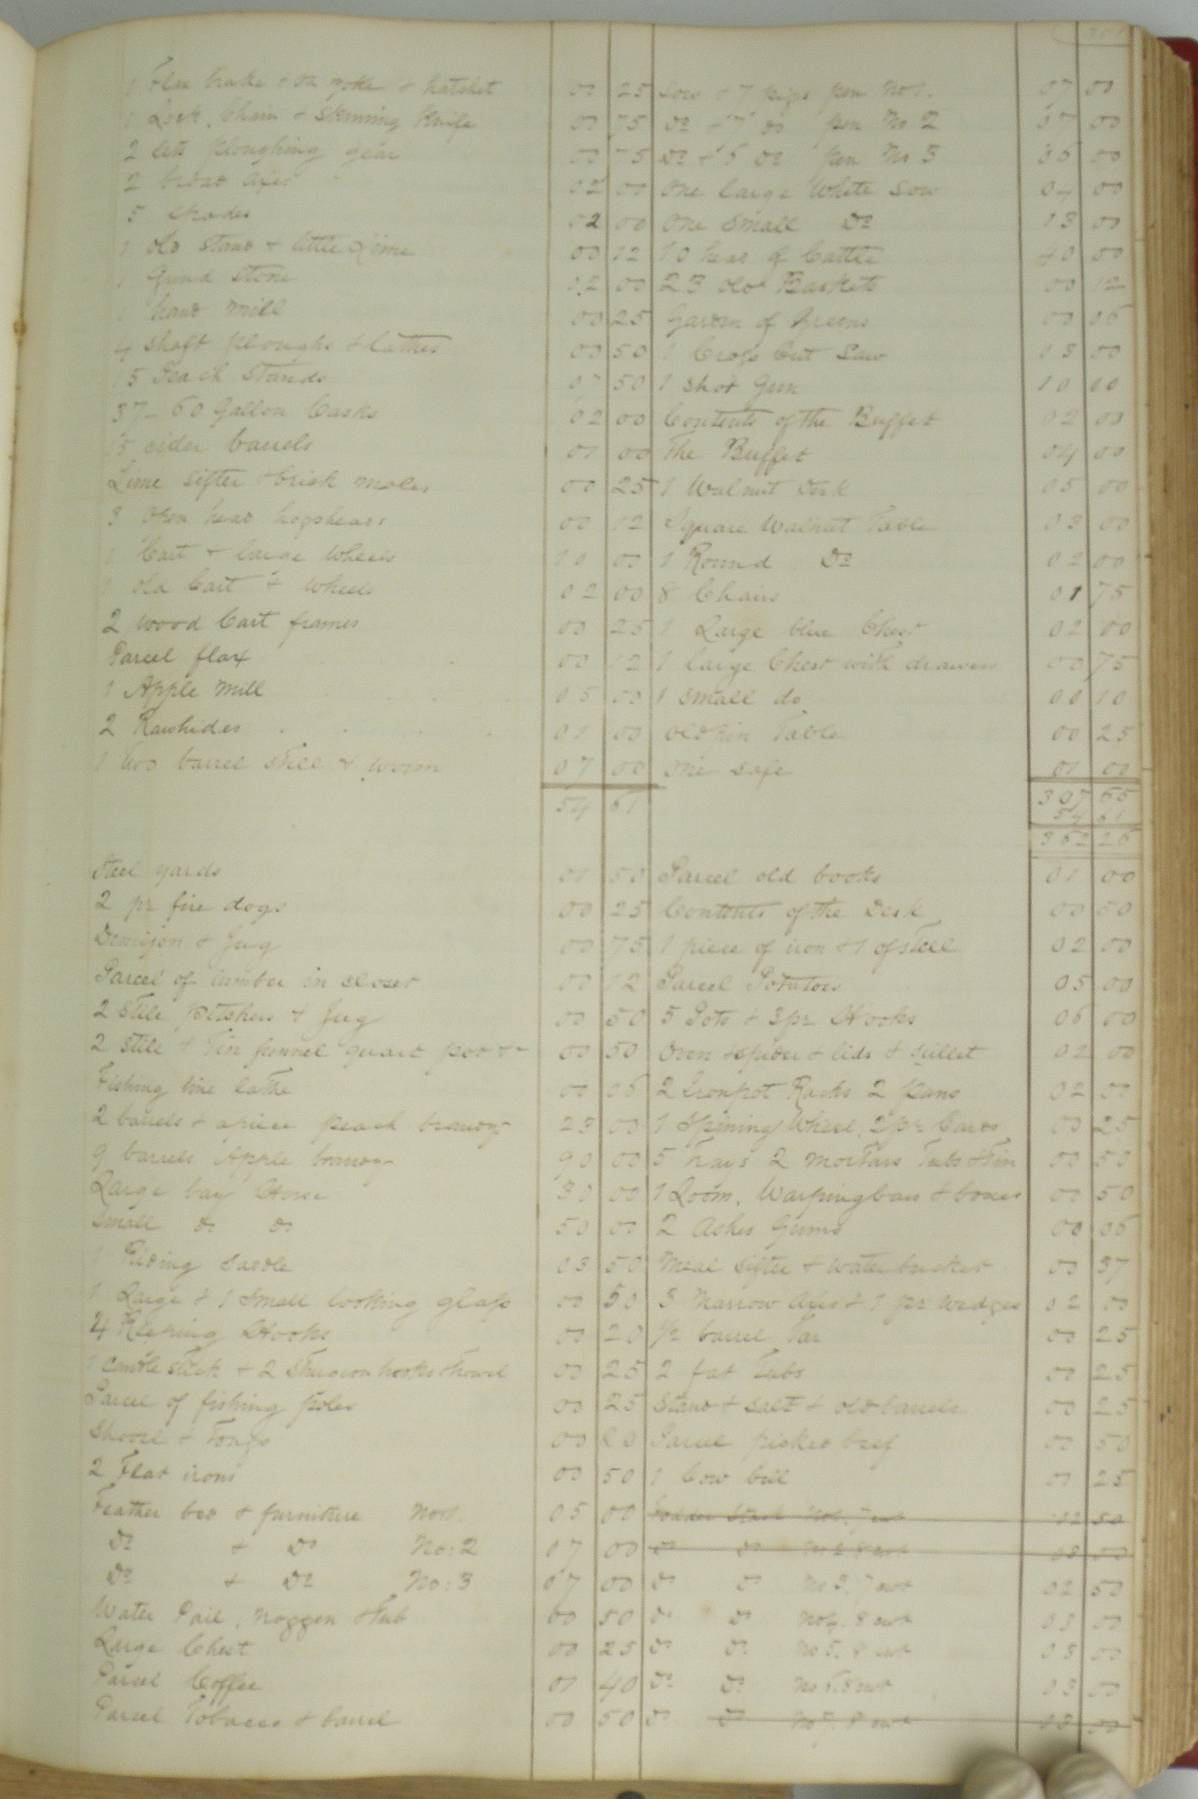 1 Flax brake + ox yoke + hatchet 00 25
1 Lock, Chain + Skinning Knife 00 75
2 sets ploughing gear 00 75
2 broad axes 02 00
5 spades 02 00
1 old stand + little Lime 00 12
1 Grind Stone 02 00
1 hand mill 00 25
4 shaft ploughs + 00 50
15 Peach Stands 50
37 - 60 Gallon Casks 02 00
15 cider barrels 01 00
Lime sifter + brick moles 00 25
3 open head hogsheads 00 12
1 Cart + large Wheels 10 00
1 old Cart + Wheels 02 00
2 wood Cart frames 00 25
Parcel flax 00 12
1 Apple Mill 05 00
2 Rawhides 01 00
1 two barrel still + worm 07 00
54 61
Sow + 7 pigs pen No 1. 07 00
Do + 7 do pen No 2 07 00
Do + 6 Do pen No 3 06 00
One large White Sow 04 00
One Small Do 03 00
10 head of Cattle 40 00
23 old Baskets 00 12
Garden of Greens 00 06
1 Cross Cut Saw 03 00
1 Shot Gun 10 00
Contents of the Buffet 02 00
The Buffet 04 00
1 Walnut Desk 05 00
Square Walnut Table 03 00
1 Round Do 02 00
8 Chairs 01 75
1 Large blue Chest 02 00
1 large Chest with drawers 00 75
1 Small do 00 10
old pin Table 00 25
One safe 01 00
307 65
54 61
362 26
Steel yards 01 50
2 pr fire dogs 00 25
Demijon + Jug 00 75
Parcel of lumber in closet 00 12
2 Stile pitchers + Jug 00 50
2 Stile + tin funnel quart pot +c 00 50
Fishing line lathe 00 06
2 barrels + a piece peach brandy 23 00
9 barrels Apple brandy 90 00
Large bay Horse 30 00
Small do do 50 00
1 Riding Sadle 03 50
1 Large + 1 Small looking glass 00 50
4 Reaping Hooks 00 20
1 candle stick + 2 hooks + 00 25
Parcel of fishing poles 00 25
Shovel + Tongs 00 20
2 Flat irons 00 50
Feather bed + furniture No 1. 05 00
Do + Do No: 2 07 00
Do + Do No: 3 07 00
Water Pail, Noggen + Tub 00 50
Large Chest 00 25
Parcel Coffee 01 40
Parcel Tobacco + barrel 00 50
Parcel old books 01 00
Contents of the Desk 00 50
1 piece of iron + 1 of steel 02 00
Parcel Potatoes 05 00
5 Pots + 3 pr Hooks 06 00
Oven + spider + lids + skillet 02 00
2 Iron pot Racks 2 pans 02 00
1 Spining Wheel, 2 pr Cards 00 25
5 Trays 2 mortars Tubs + tin 00 50
1 Loom, Warping bars + boxes 00 50
2 Ashes Gums 00 06
Meal Sifter + water bucket 00 37
3 Narrow Axes + 1 pr wedges 02 00
1/2 barrel Tar 00 25
2 fat Tubs 00 25
Stand + salt + old barrels 00 25
Parcel picked beef 00 50
1 Cow bell 00 25
Fodder Stack No 1. 7 cwt 02 50
Do Do No 2 8 cwt 03 00
Do Do No 3. 7 cwt 02 50
Do Do No 4. 8 cwt 03 00
Do Do No 5. 8 cwt 03 00
Do Do No 6. 8 cwt 03 00
Do Do No 7. 8 cwt 03 00